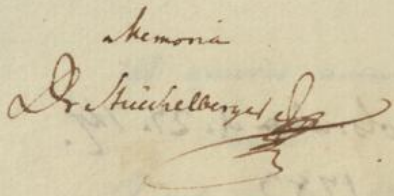 Memoria
Dr Stückelberger